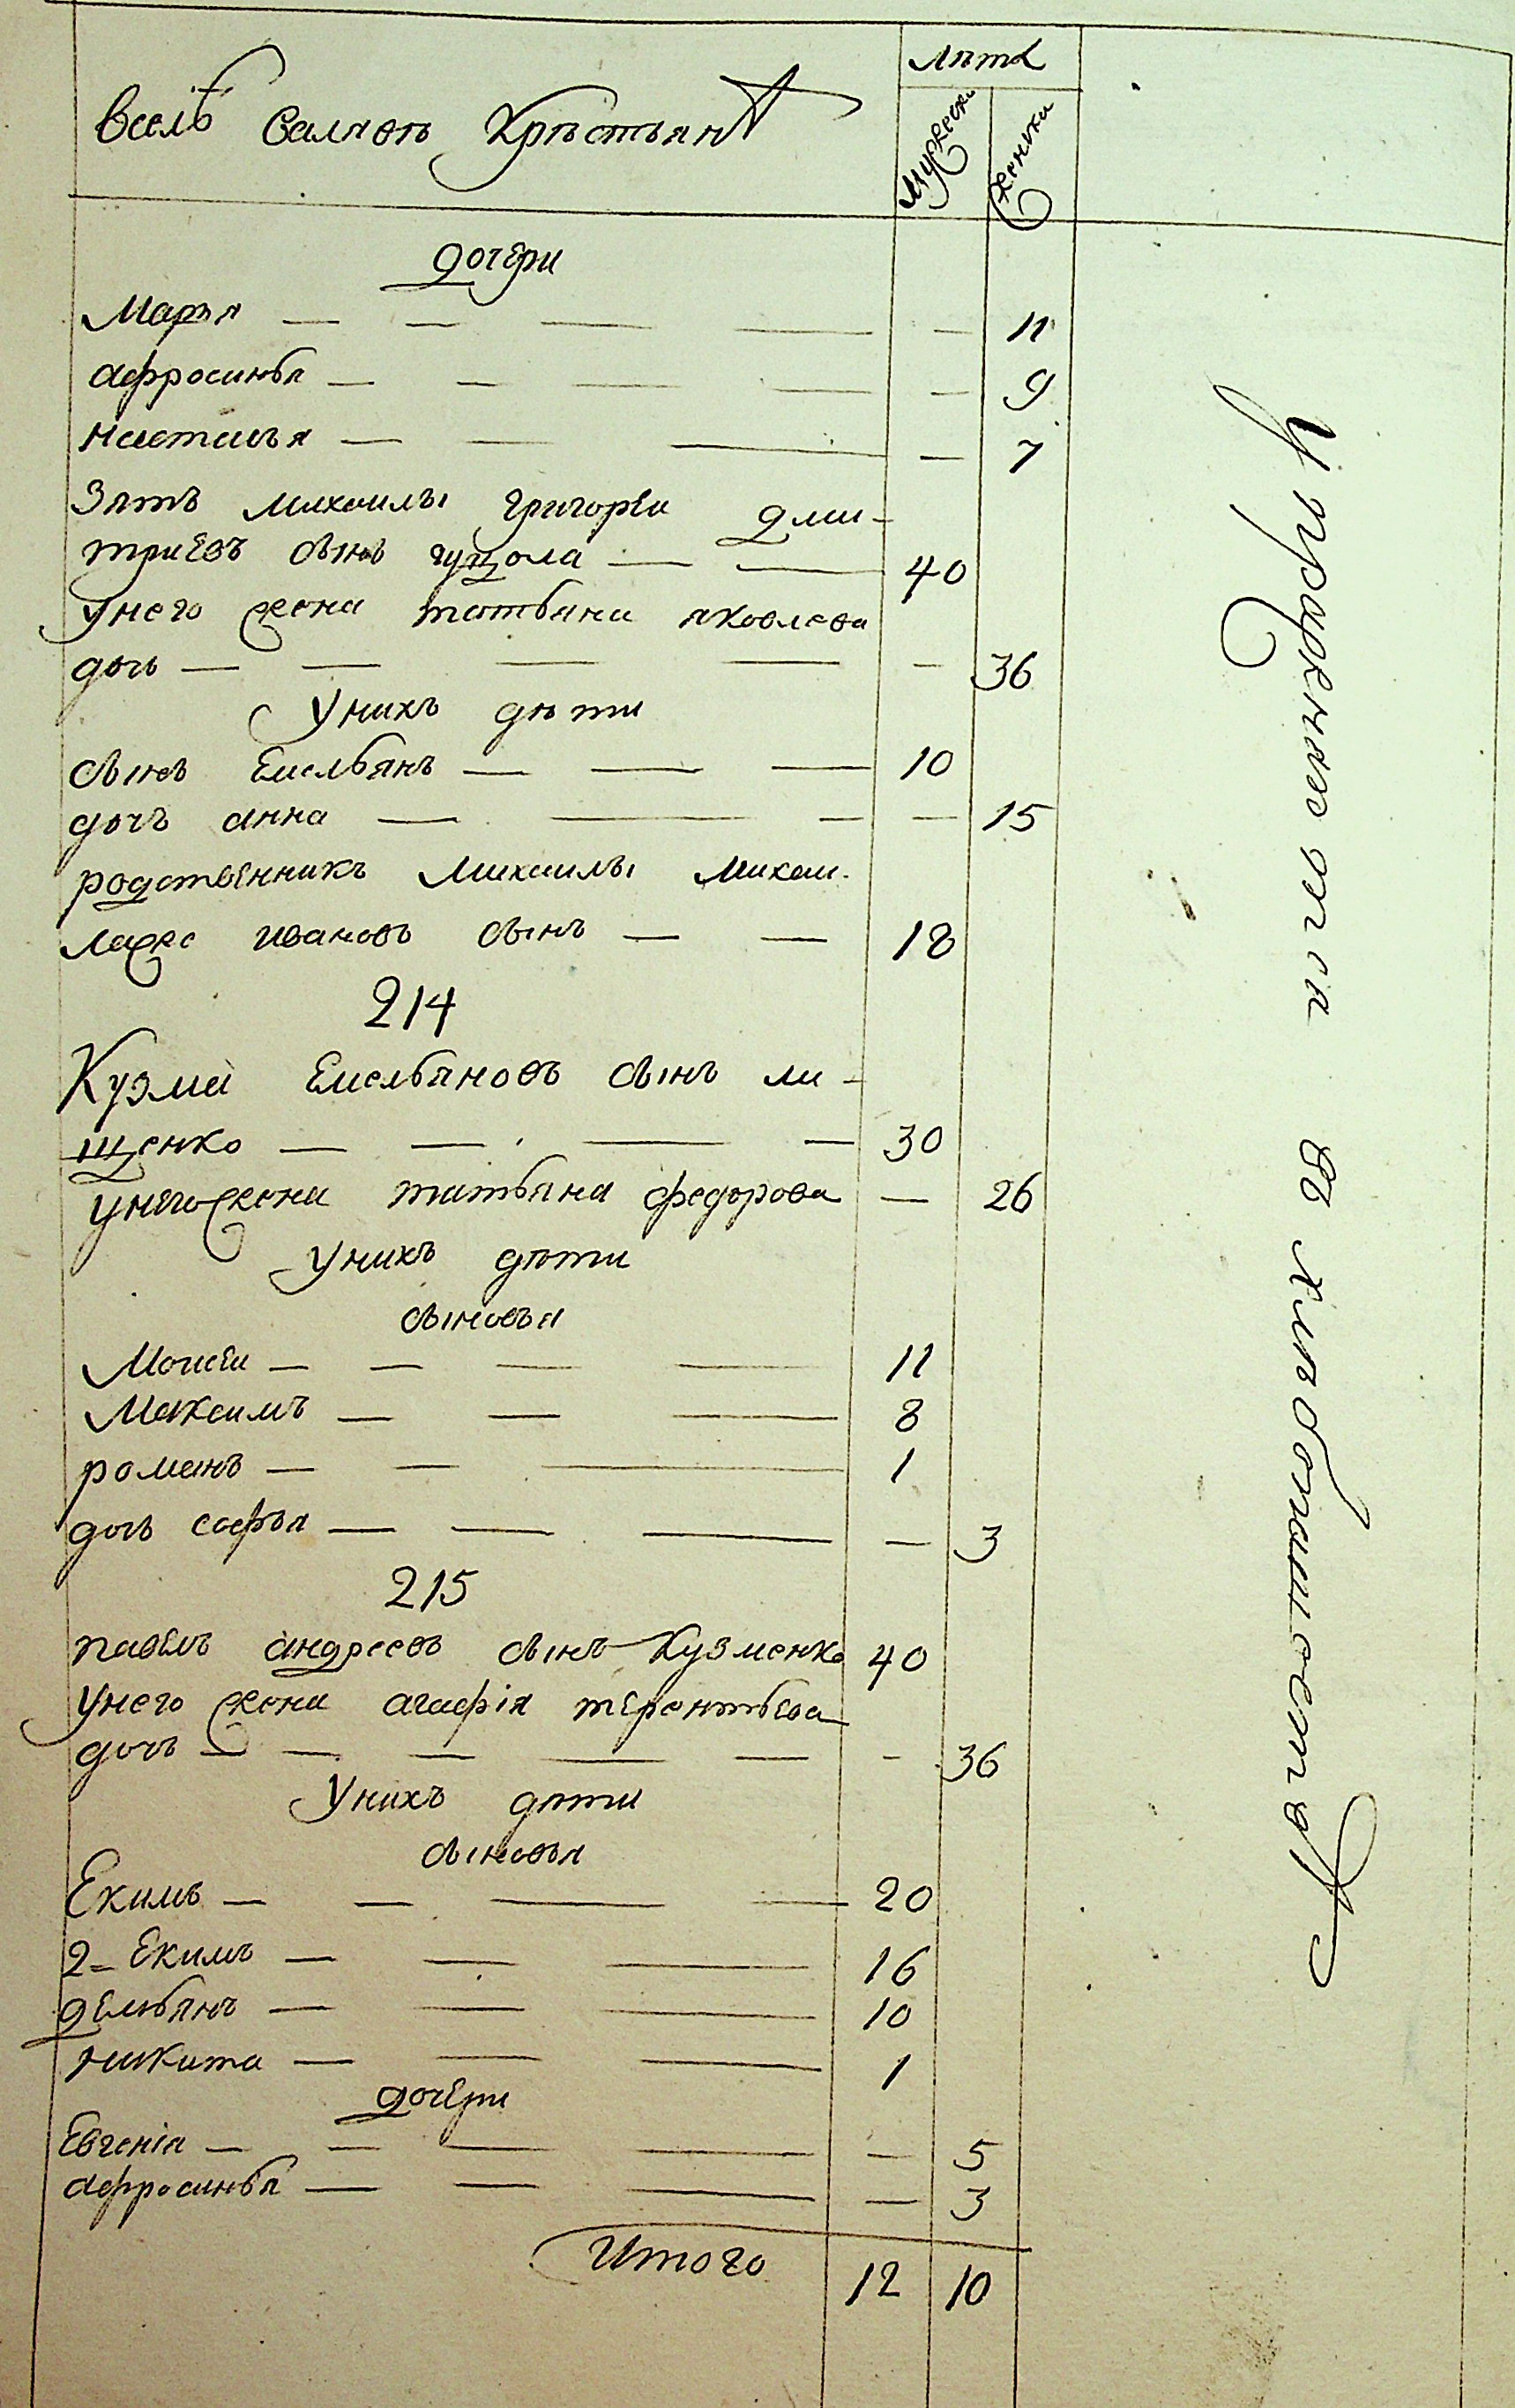 Лѣта
Вселѣ Салчѣ Крѣстьянъ
Мужеска
женска
дочери
Марья — — — — — 11
афросинья — — — — — 9
настасья — — — — 7
Зять михаилы григореи дми-
триевъ сынъ гущола — — 40
Унего жена татьяна яковлева
дочь — — — — — 36
Унихъ дѣти
сынъ Емельянъ — — — 10
дочъ анна — — — — 15
родственникъ михаилы михаи-
лаже Ивановъ сынъ — — 18
214
Кузма Емельяновъ сынъ ли-
щенко — — — — 30
унегожена татьяна федорова — 26
Унихъ дѣти
сыновья
Моисеи — — — — 11
Максимъ — — — 8
романъ — — — 1
дочь софья — — — — 3
215
павелъ андреевъ сынъ Кузменко 40
Унего жена агафія терентьева
дочь — — — — — — 36
Унихъ дѣти
сыновья
Екимъ — — — — 20
2= Екимъ — — — 16
демьянъ — — — 10
никита — — — 1
дочери
Евгенія — — — — — 5
афросинья — — — — 3
Итого 12 10
Упражняются в хлебопашестве